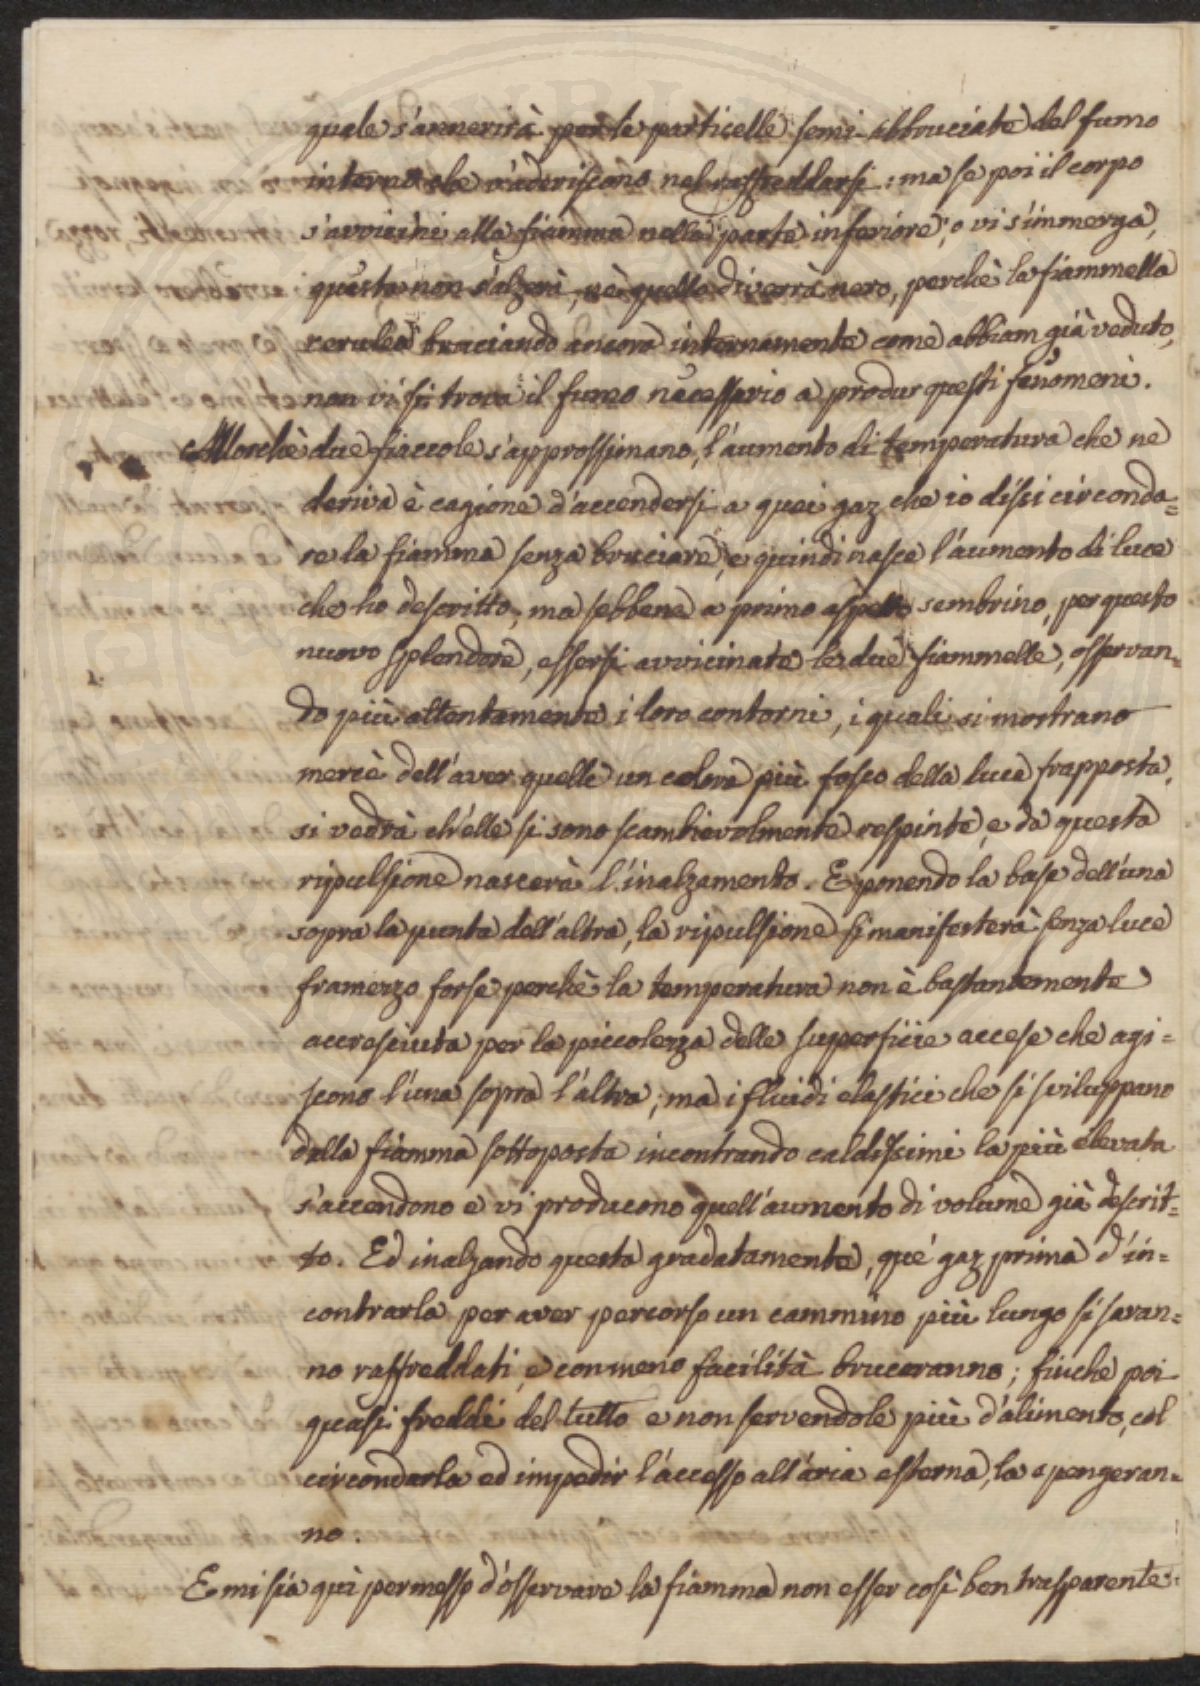 quale s'annerirà per le particelle semi-abbruciate del fumo
interno che v'aderiscono nel raffreddarsi: ma se poi il corpo
s'avvicini alla fiamma nella parte inferiore, o vi s'immerga,
questa non s'alzerà, nè quello diverrà nero, perchè la fiammella
cerulea bruciando ancora internamente come abbiam già veduto,
non vi si trova il fumo necessario a produr questi fenomeni.
Allorchè due fiaccole s'approssimano, l'aumento di temperatura che ne
deriva è cagione d'accendersi a quei gaz che io dissi circonda=
re la fiamma senza bruciare, e quindi nasce l'aumento di luce
che ho descritto, ma sebbene a primo aspetto sembrino, per questo
nuovo splendore, essersi avvicinate le due fiammelle, osservan=
do più attentamente i loro contorni, i quali si mostrano
mercè dell'aver quelle un colore più fosco della luce frapposta,
si vedrà ch'elle si sono scambievolmente respinte, e da questa
ripulsione nascerà l'inalzamento. E ponendo la base dell'una
sopra la punta dell'altra, la ripulsione si manifesterà senza luce
framezzo forse perchè la temperatura non è bastantemente
accresciuta per la piccolezza delle superficie accese che agi=
scono l'una sopra l'altra; ma i fluidi elastici che si sviluppano
dalla fiamma sottoposta incontrando caldissimi la più elevata
s'accendono e vi producono quell'aumento di volume già descrit=
to. Ed inalzando questa gradatamente, que' gaz prima d'in=
contrarla per aver percorso un cammino più lungo si saran=
no raffreddati, e con meno facilità bruceranno; finche poi
quasi freddi del tutto e non servendole più d'alimento, col
circondarla ed impedir l'accesso all'aria esterna, la spengeran=
no.
E mi sia quì permesso d'osservare la fiamma non esser così ben trasparente